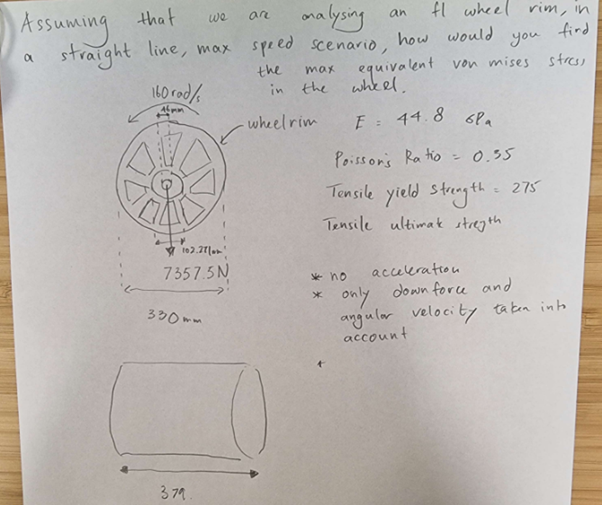 Assuming that we are analysing an f1 wheel rim, in
a straight line, max speed scenario, how would you find
the max equivalent von mises stress
in the wheel.
160 rad/s
wheel rim
E = 44.8 GPa
Poisson's Ratio = 0.35
Tensile yield strength = 275
Tensile ultimate
7357.5N
330mm
* no acceleration
* only downforce and
angular velocity taken into
account
379.